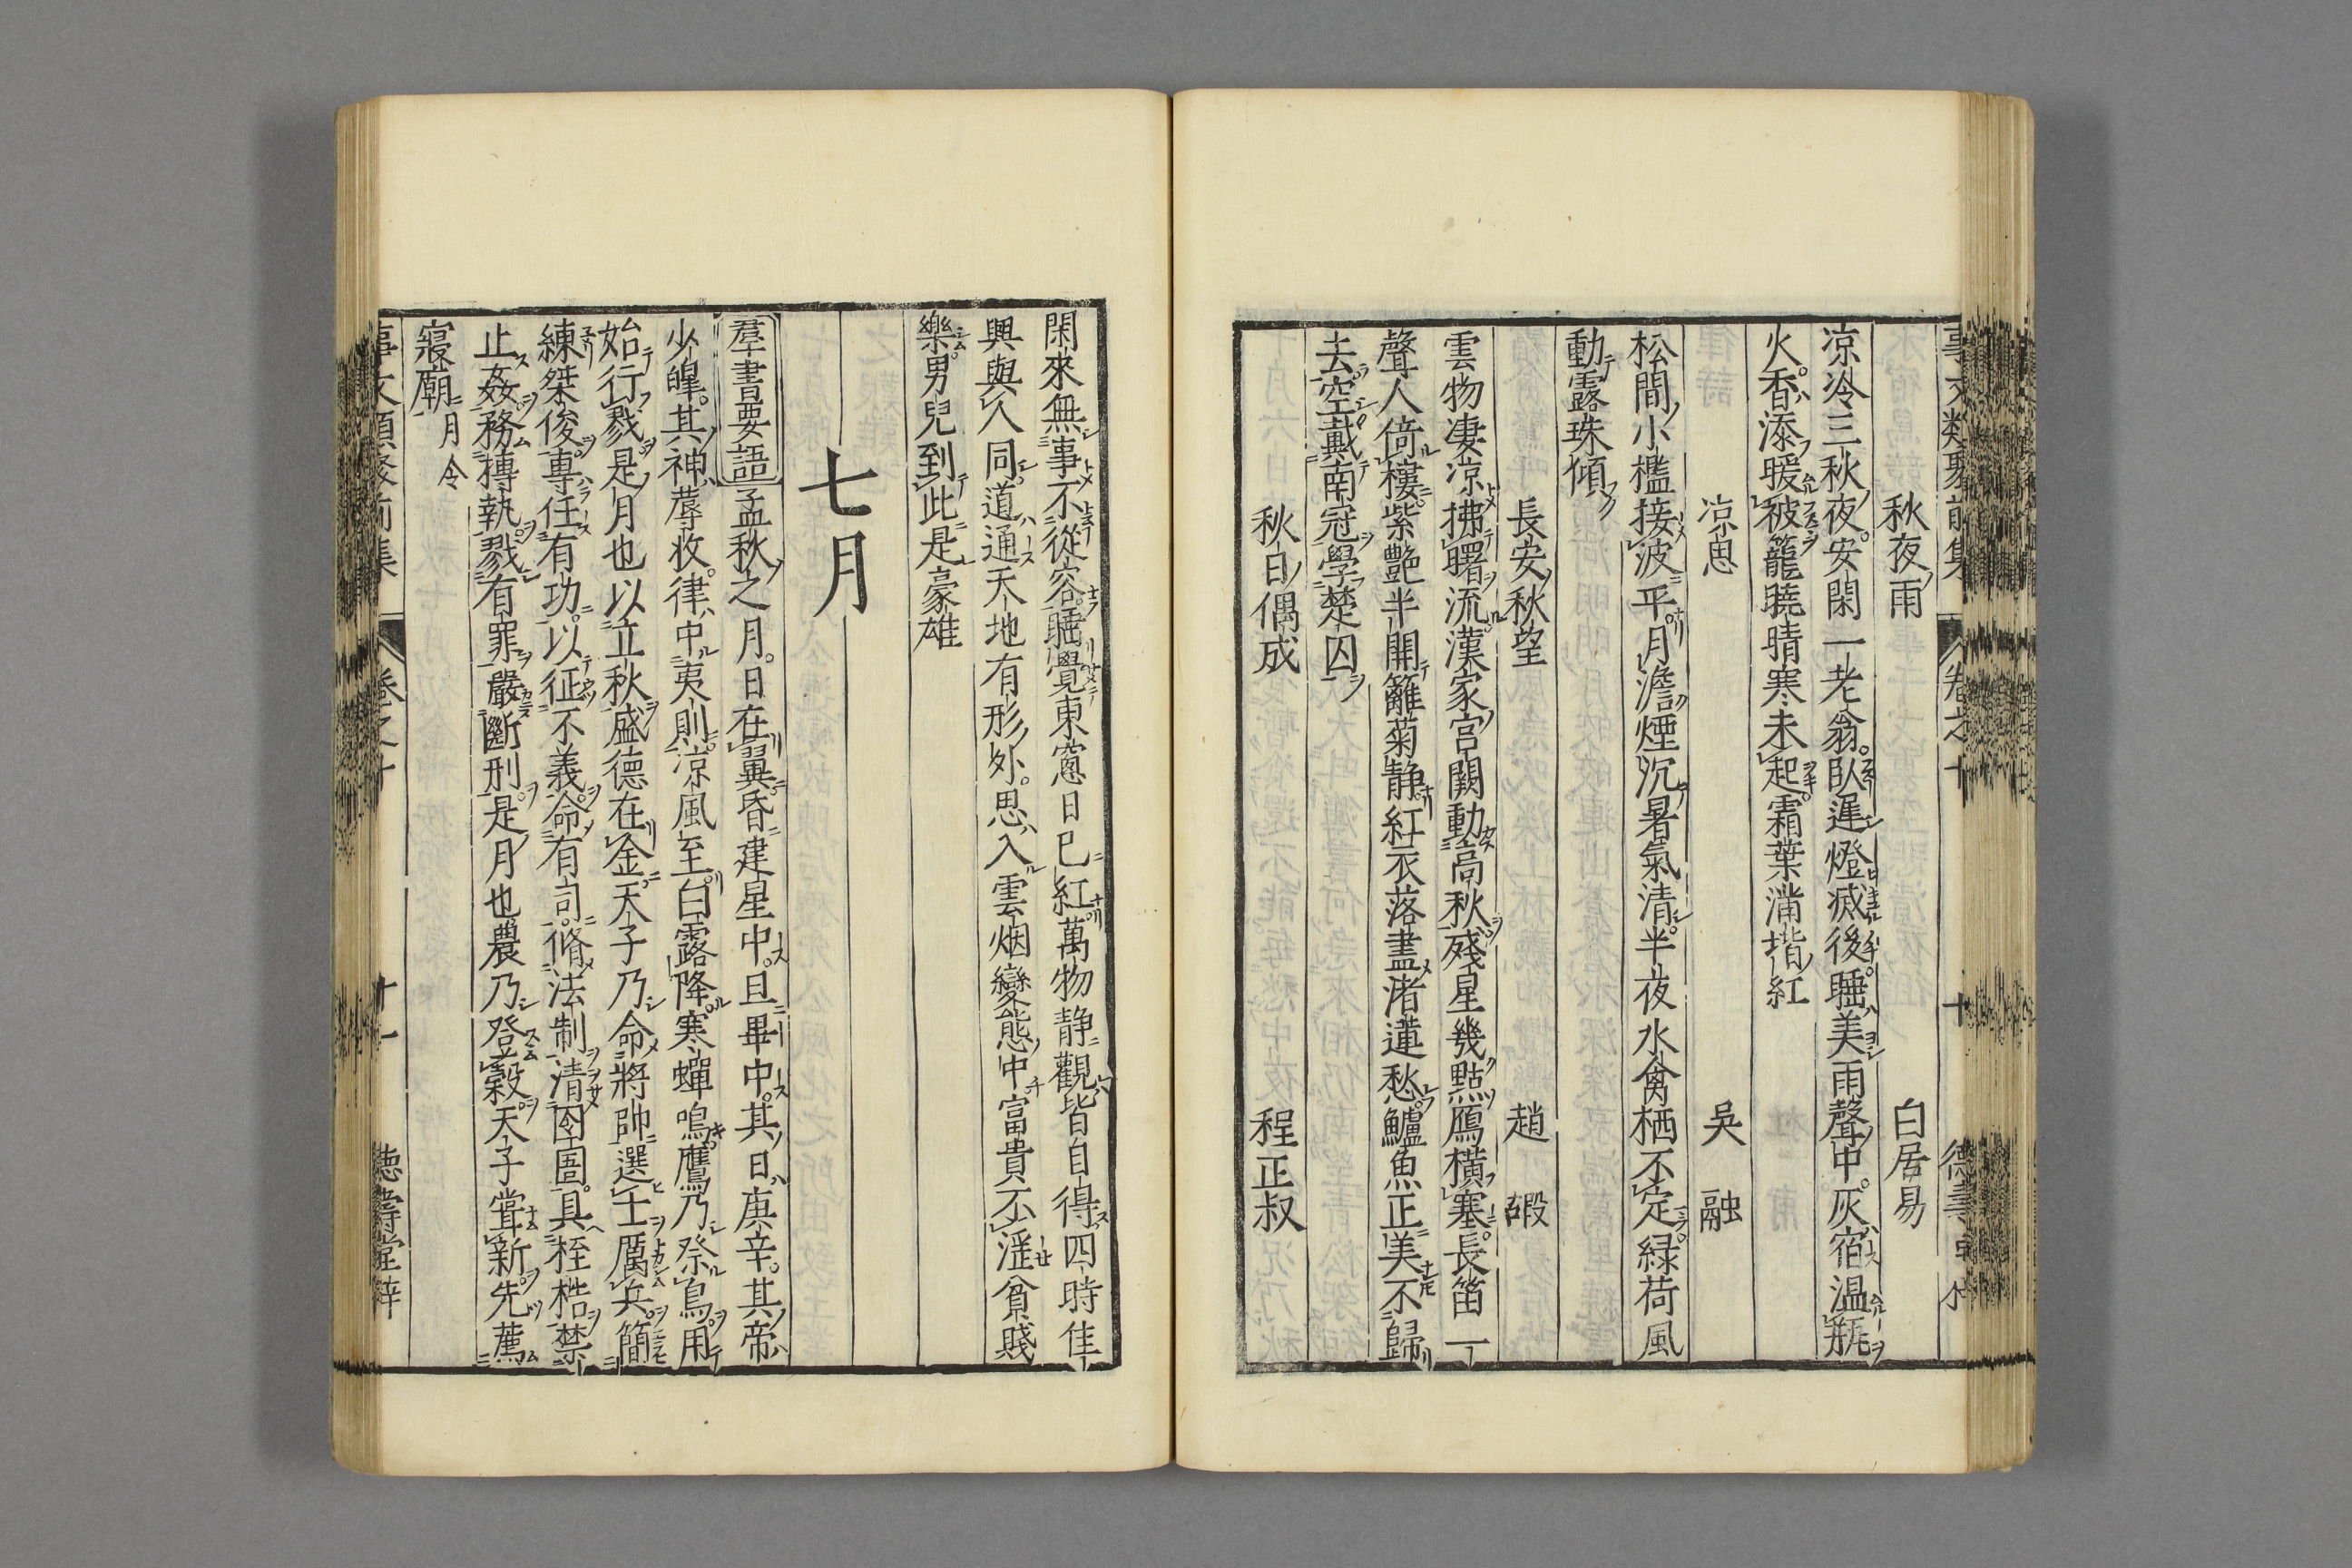 秋夜雨 白居易
凉冷三秋夜安閑一老翁臥遲燈滅後睡美雨聲中灰宿温瓶
火香添暖被籠曉晴寒未起霜葉滿揩紅
凉思 吳融
松間小檻接波平月澹煙沉暑氣清半夜水禽栖不定緑荷風
動露珠傾
長安秋望 趙嘏
雲物凄凉拂曙流漢家宮闕動高秋殘星幾點鴈橫塞長笛一
聲人倚樓紫艷半開籬菊静紅衣落盡渚蓮愁鱸魚正美不歸
去空戴南冠學楚囚
秋日偶成 程正叔
閑來無事不從容睡覺東窓日已紅萬物静觀皆自得四時佳
興與人同道通天地有形外思入雲烟變態中富貴不滛貧賤
樂男兒到此是豪雄
七月
羣書要語 孟秋之月日在翼昏建星中旦畢中其日庚辛其帝
少皥其神蓐收律中夷則凉風至白露降寒蟬鳴鷹乃祭鳥用
始行戮是月也以立秋盛德在金天子乃命將帥選士厲兵簡
練桀俊專任有功以征不義命有司脩法制清囹圄具桎梏禁
止姦務摶執戮有罪嚴斷刑是月也農乃登穀天子甞新先薦
寝廟 月令